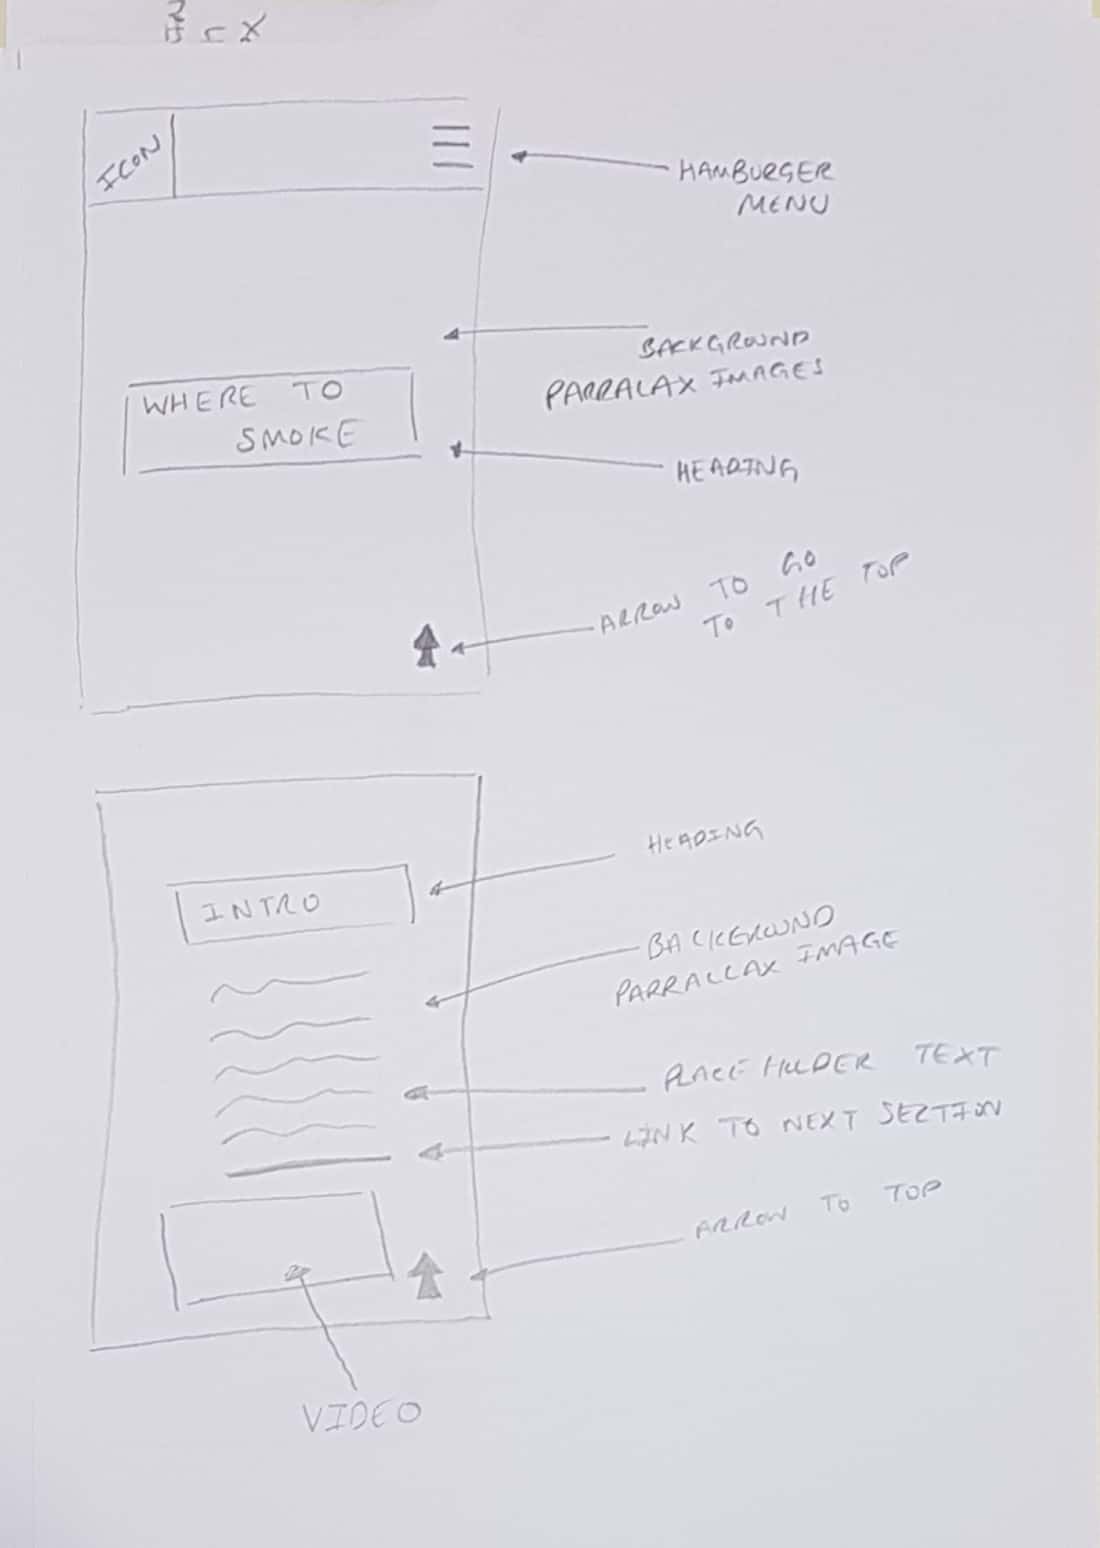 ICON
HAMBURGER
MENU
BACKGROUND
PARRALAX IMAGES
WHERE TO
SMOKE
HEADING
ARROW TO GO
TO THE TOP
HEADING
INTRO
BACKGROUND
PARRALLAX IMAGE
PLACEHOLDER TEXT
LINK TO NEXT SECTION
ARROW TO TOP
VIDEO